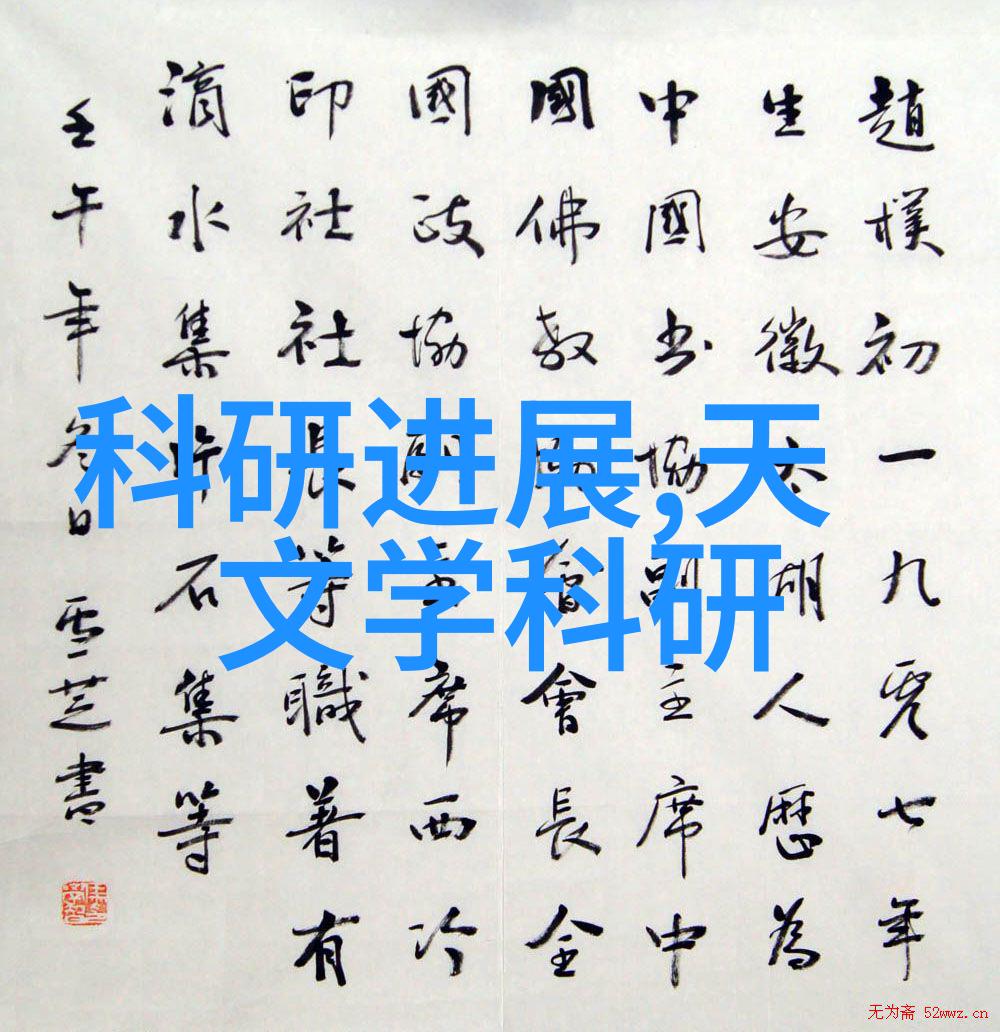 趙樸初一九零七年
生安徽太湖人歷為
中國書協副主席中
國佛教協會會長全
國政協副主席西冷
印社社長等職著有
滴水集片石集等
壬午年冬日雪芝書
科研进展,天
文学科研
无为斋 52wwz.cn